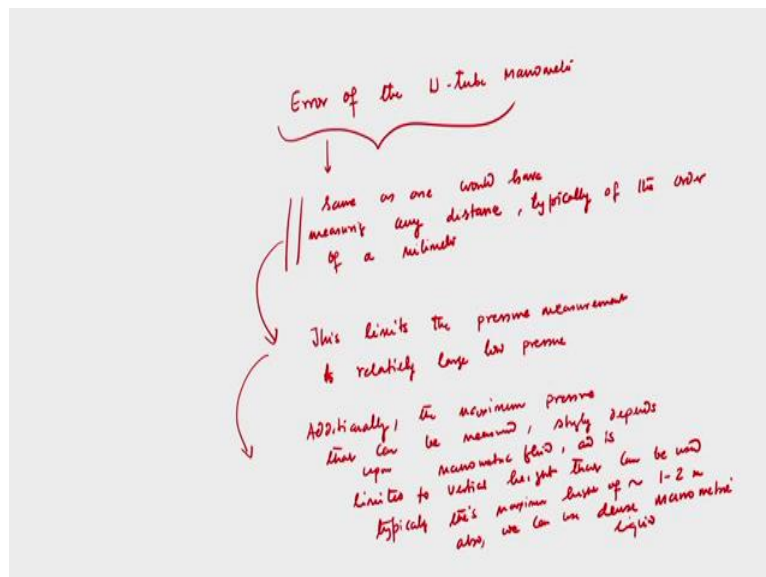 Error of the U-tube Manometer
Same as one would have
measuring any distance, typically of the order
of a milimeter
This limits the pressure measurement
to relatively large low pressure
Additionally, the maximum pressure
that can be measured, depends
upon manometric fluid, and is
limited to vertical height that can be used
typically this maximum height of ~ 1-2 m
also, we can use dense manometric
liquid